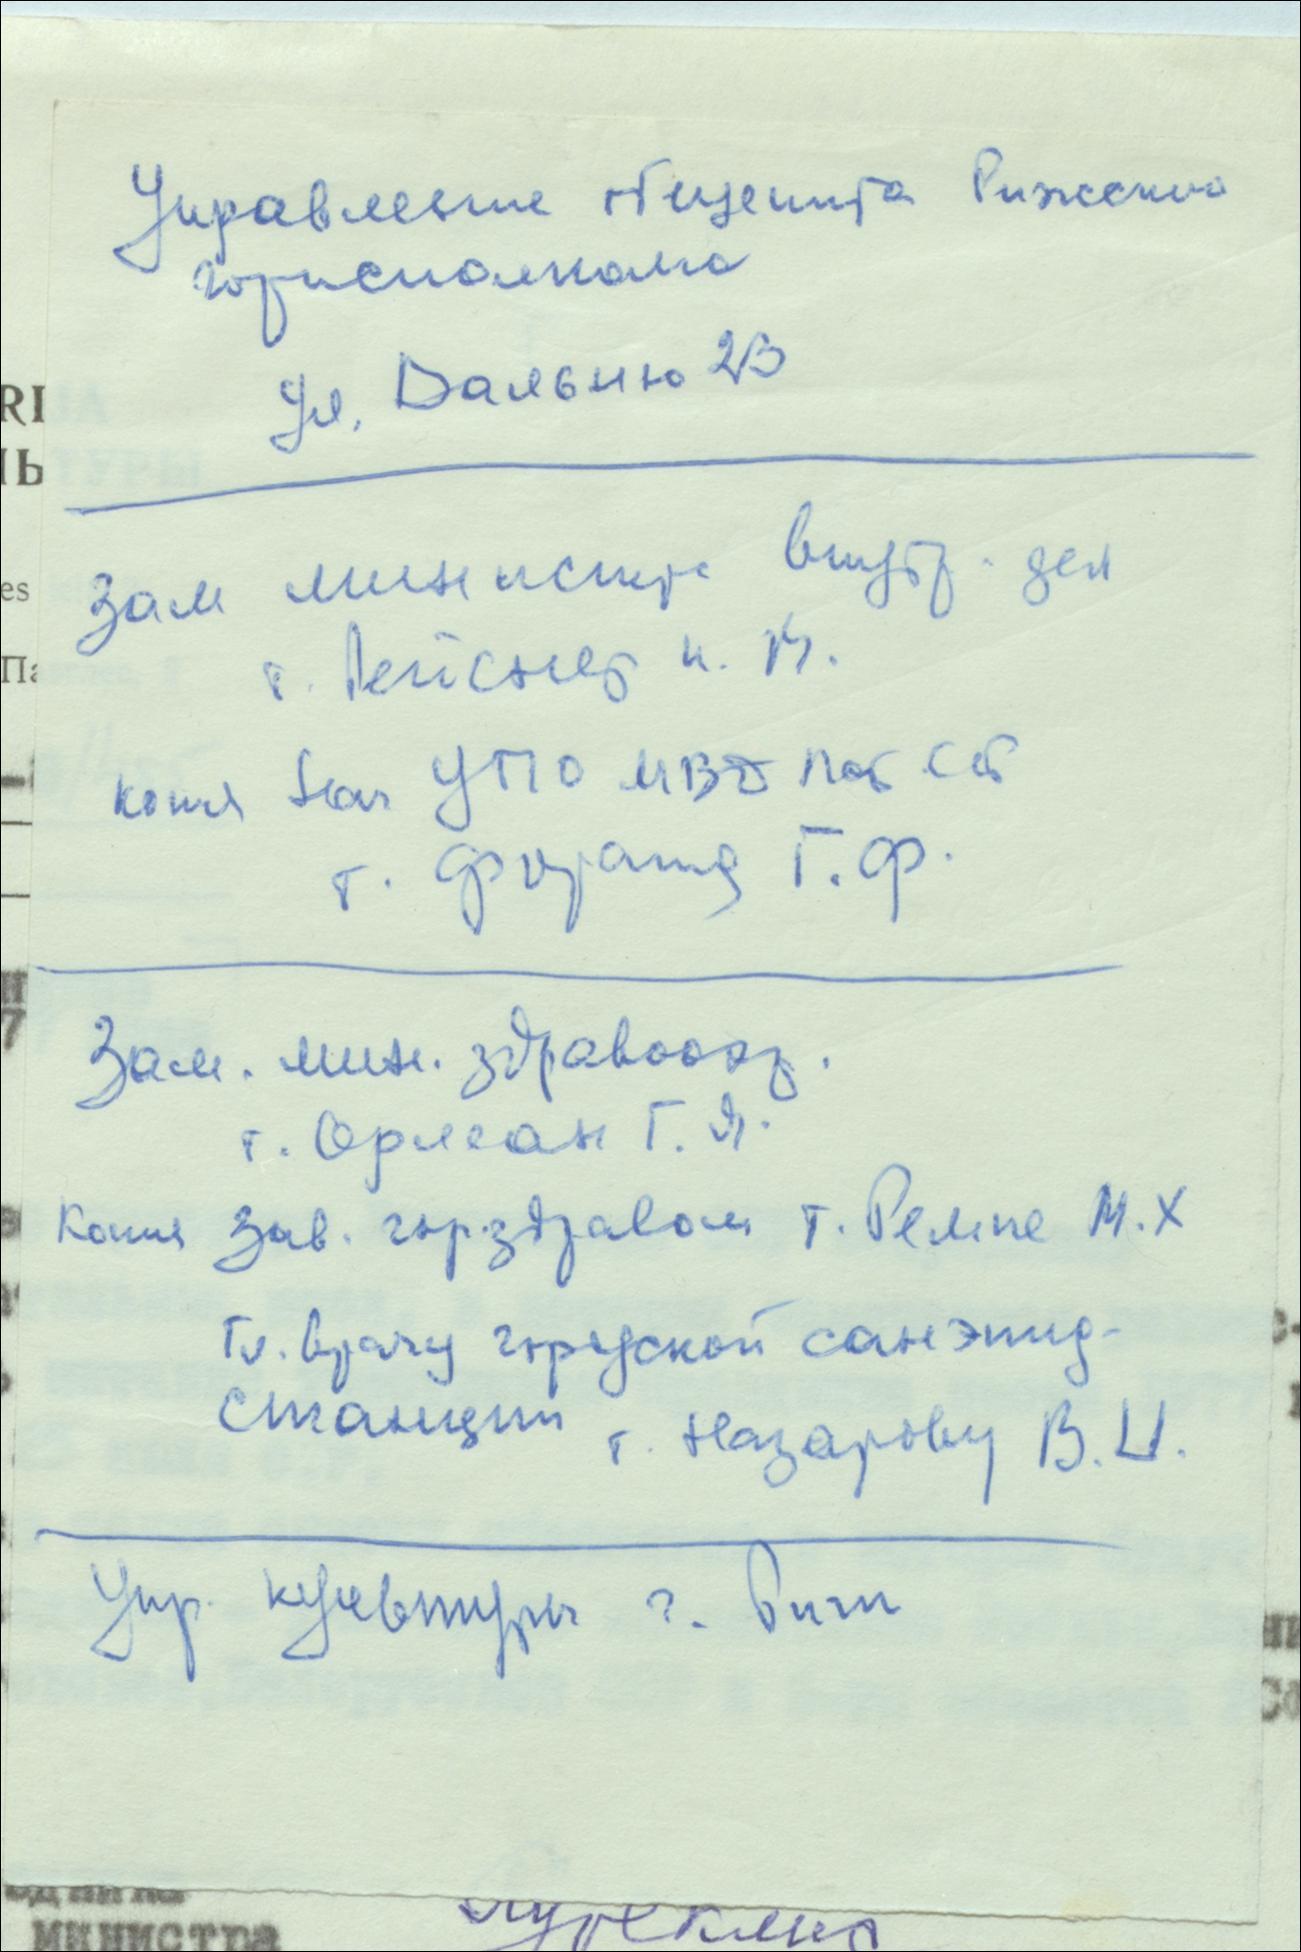 Управление общепита Рижского
горисполкома
ул. Дальню 2В
Зам министра внутр. дел
т. Рейснер
Копия УПО МВД Лат. ССР
т. Г.Ф.
Зам. мин. здравоохр.
т. Орлеан Г.Я.
Копия Зав. горздравом т. Ремпе М.Х
Гл. врачу городской санэпид-
станции т. Назарову В.И.
Упр. культуры г. Риги
министра